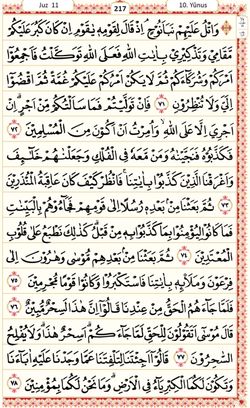 Juz 11 217 10. Yûnus
وَاتْلُ عَلَيْهِمْ نَبَاَ نُوحٍۢ اِذْ قَالَ لِقَوْمِهٖ يَا قَوْمِ اِنْ كَانَ كَبُرَ عَلَيْكُمْ
مَقَامٖي وَتَذْكٖيرٖي بِاٰيَاتِ اللّٰهِ فَعَلَى اللّٰهِ تَوَكَّلْتُ فَاَجْمِعُٓوا
اَمْرَكُمْ وَشُرَكَٓاءَكُمْ ثُمَّ لَا يَكُنْ اَمْرُكُمْ عَلَيْكُمْ غُمَّةً ثُمَّ اقْضُٓوا
اِلَيَّ وَلَا تُنْظِرُونِ ٧١ فَاِنْ تَوَلَّيْتُمْ فَمَا سَاَلْتُكُمْ مِنْ اَجْرٍ اِنْ
اَجْرِيَ اِلَّا عَلَى اللّٰهِ وَاُمِرْتُ اَنْ اَكُونَ مِنَ الْمُسْلِمٖينَ ٧٢
فَكَذَّبُوهُ فَنَجَّيْنَاهُ وَمَنْ مَعَهُ فِي الْفُلْكِ وَجَعَلْنَاهُمْ خَلَٓائِفَ
وَاَغْرَقْنَا الَّذٖينَ كَذَّبُوا بِاٰيَاتِنَا فَانْظُرْ كَيْفَ كَانَ عَاقِبَةُ الْمُنْذَرٖينَ
٧٣ ثُمَّ بَعَثْنَا مِنْ بَعْدِهٖ رُسُلًا اِلٰى قَوْمِهِمْ فَجَٓاؤُهُمْ بِالْبَيِّنَاتِ
فَمَا كَانُوا لِيُؤْمِنُوا بِمَا كَذَّبُوا بِهٖ مِنْ قَبْلُ كَذٰلِكَ نَطْبَعُ عَلٰى قُلُوبِ
الْمُعْتَدٖينَ ٧٤ ثُمَّ بَعَثْنَا مِنْ بَعْدِهِمْ مُوسٰى وَهٰرُونَ اِلٰى
فِرْعَوْنَ وَمَلَا۬ئِهٖ بِاٰيَاتِنَا فَاسْتَكْبَرُوا وَكَانُوا قَوْمًا مُجْرِمٖينَ ٧٥
فَلَمَّا جَٓاءَهُمُ الْحَقُّ مِنْ عِنْدِنَا قَالُٓوا اِنَّ هٰذَا لَسِحْرٌ مُبٖينٌ ٧٦
قَالَ مُوسٰٓى اَتَقُولُونَ لِلْحَقِّ لَمَّا جَٓاءَكُمْ اَسِحْرٌ هٰذَا وَلَا يُفْلِحُ
السَّاحِرُونَ ٧٧ قَالُٓوا اَجِئْتَنَا لِتَلْفِتَنَا عَمَّا وَجَدْنَا عَلَيْهِ اٰبَٓاءَنَا
وَتَكُونَ لَكُمَا الْكِبْرِيَٓاءُ فِي الْاَرْضِ وَمَا نَحْنُ لَكُمَا بِمُؤْمِنٖينَ ٧٨